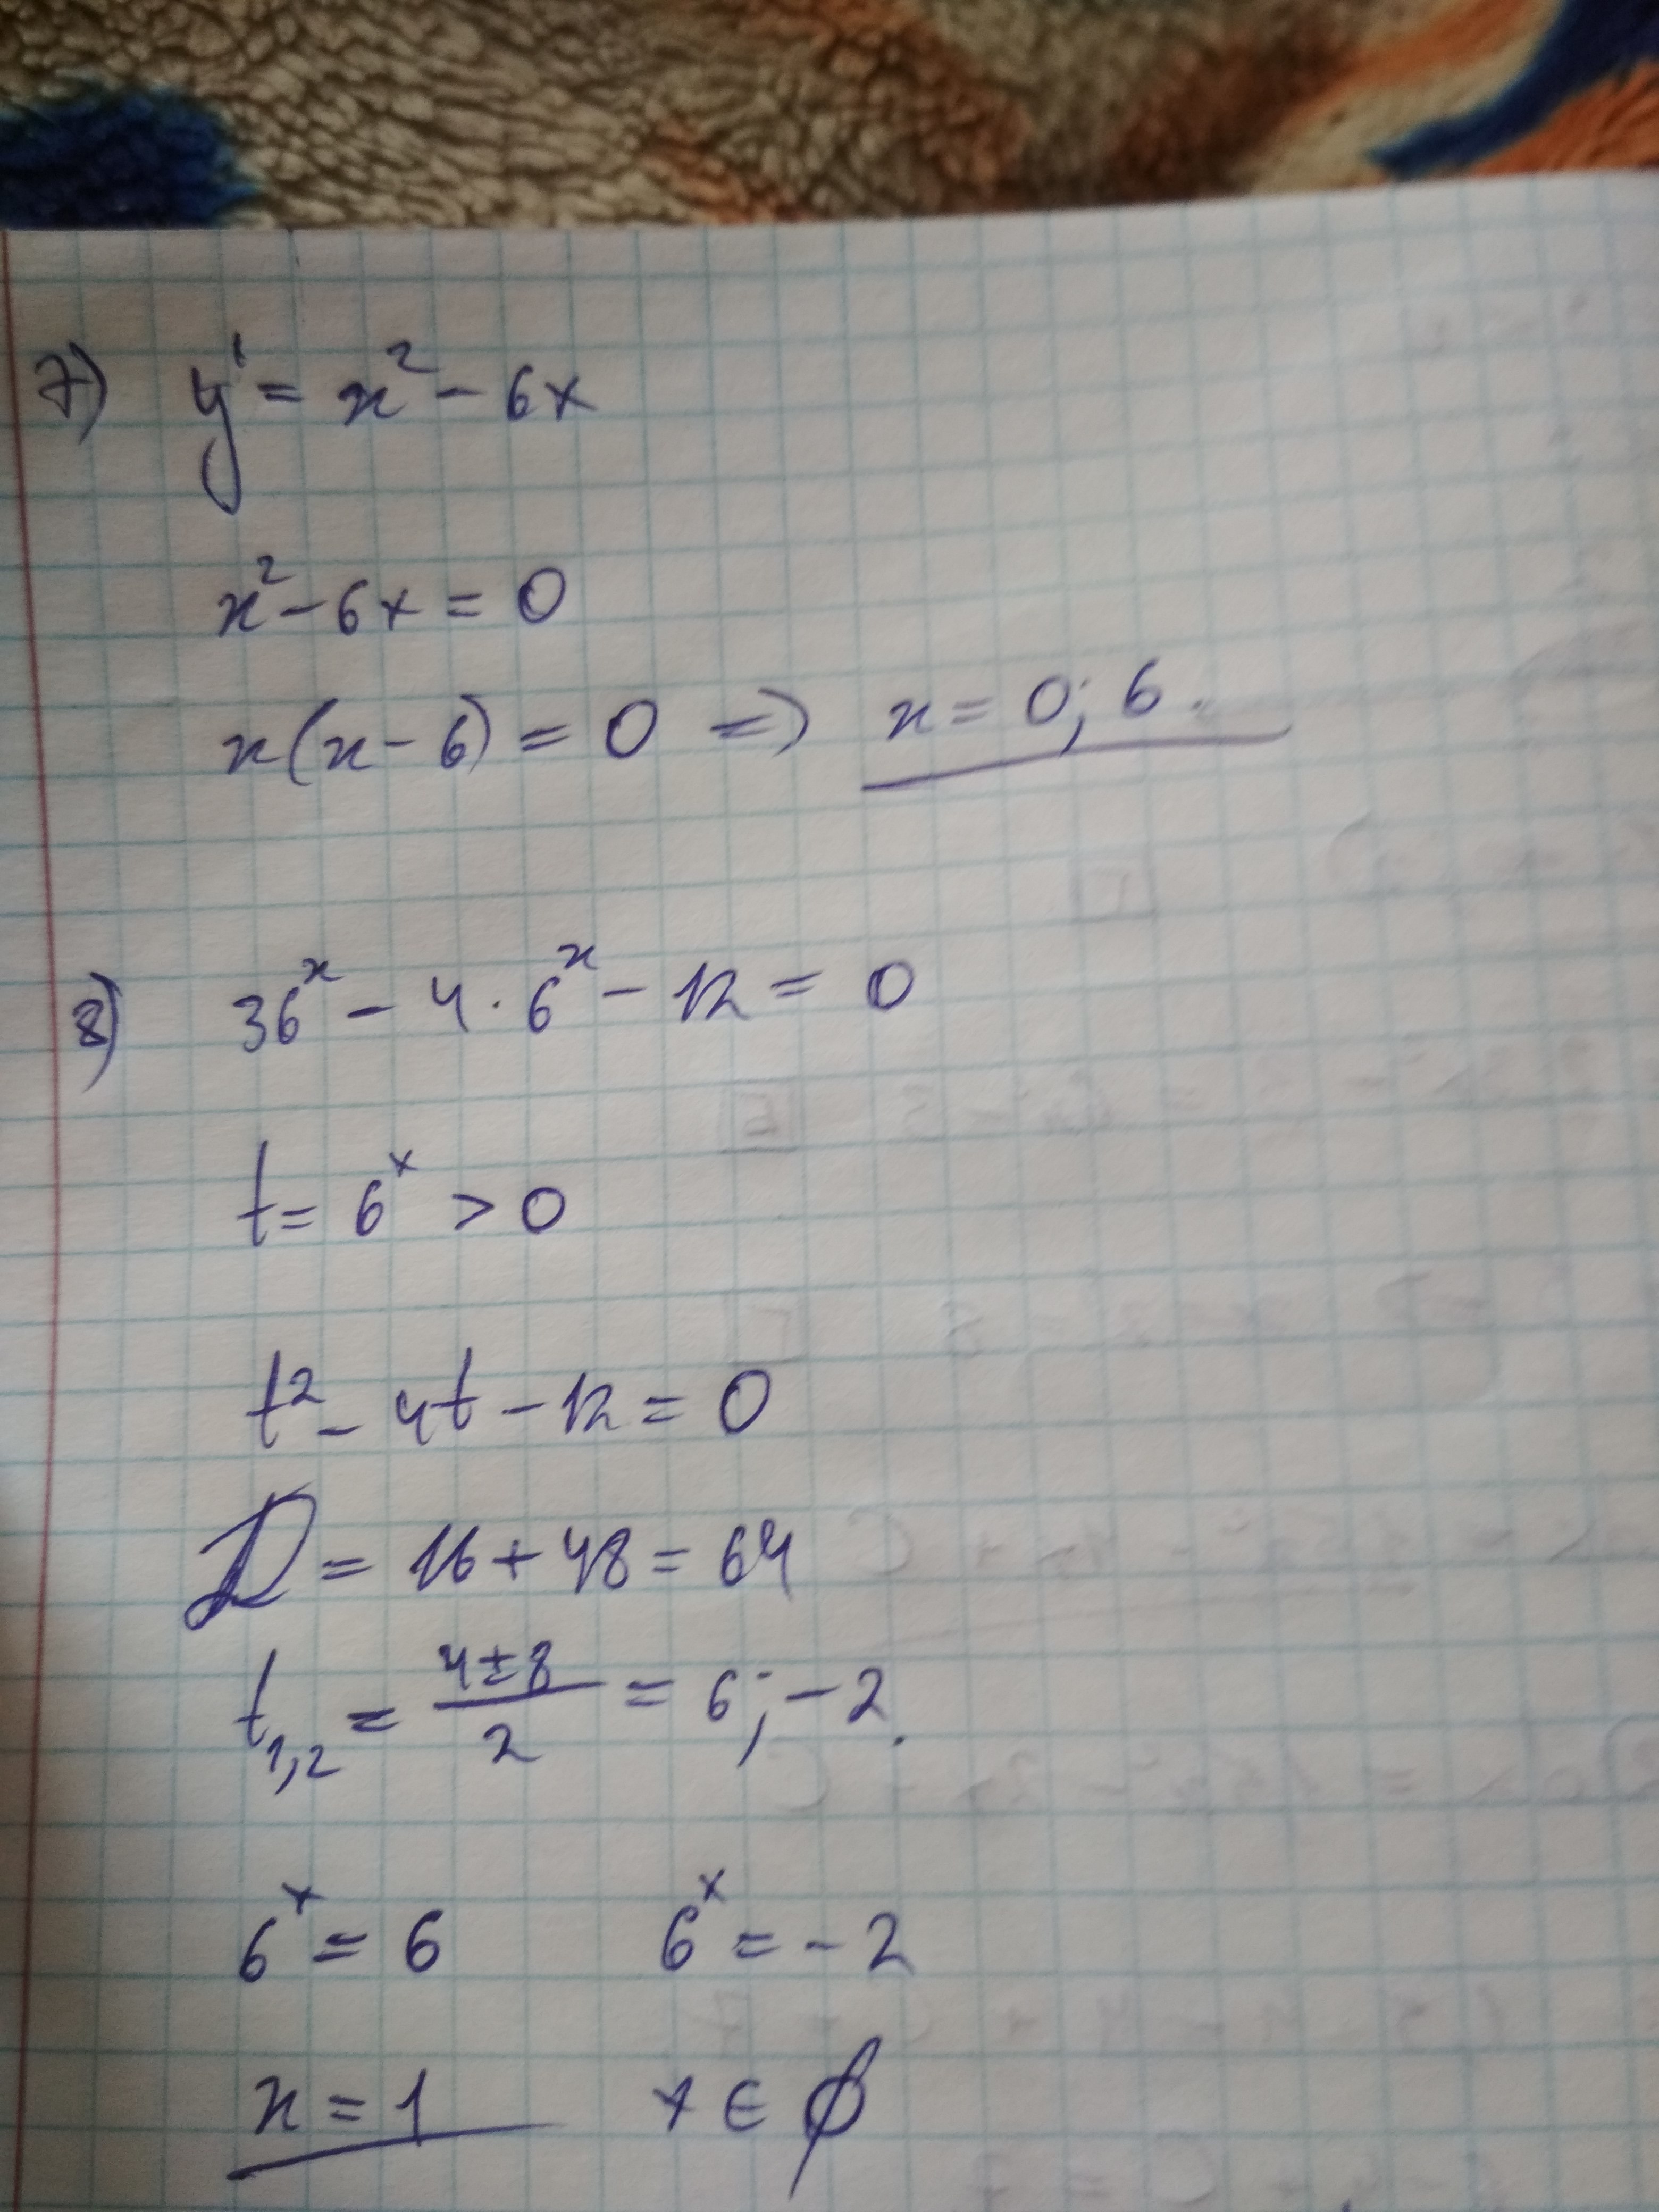 7) y' = x² - 6x
x² - 6x = 0
x(x - 6) = 0 => x = 0; 6.
8) 36ˣ - 4 · 6ˣ - 12 = 0
t = 6ˣ > 0
t² - 4t - 12 = 0
D = 16 + 48 = 64
t₁,₂ = (4 ± 8)/2 = 6; -2.
6ˣ = 6 6ˣ = -2
x = 1 x ∈ ∅